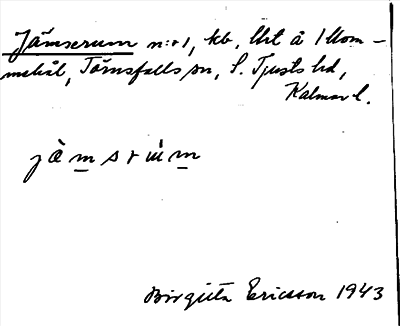 Jämserum n:r 1, kb, lht å 1 Mom-
mehål, Törnsfalls sn, S. Tjusts hd,
Kalmar l.
jàmsrùm
Birgitta Ericsson 1943